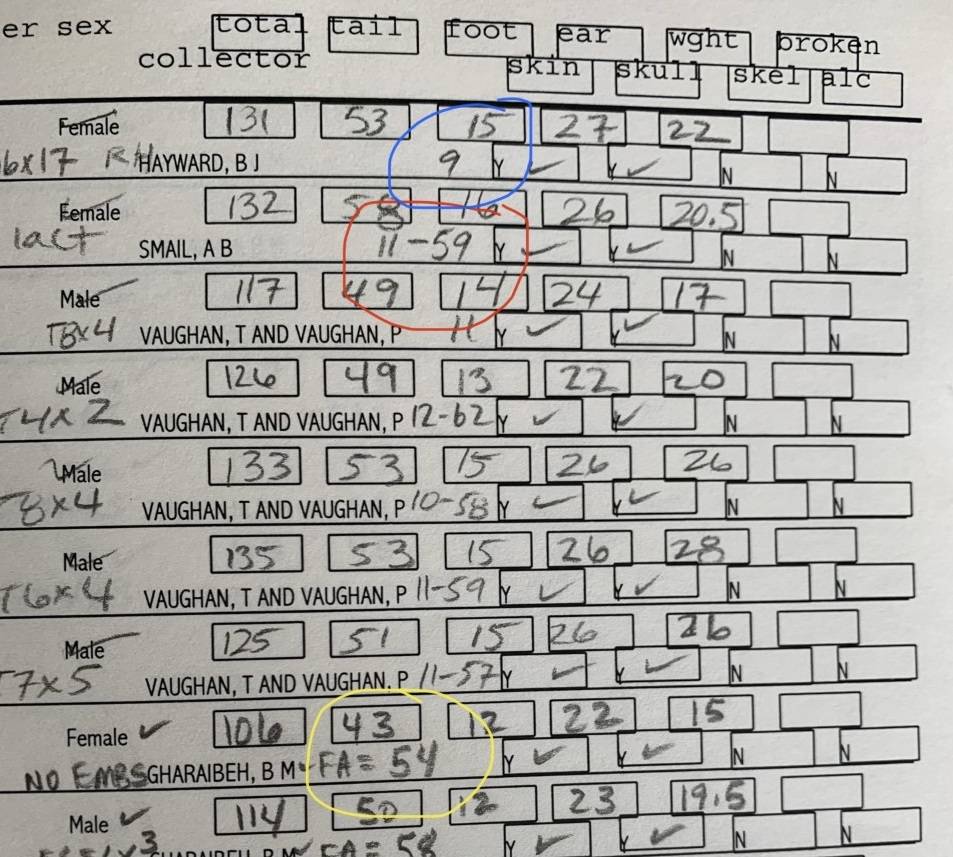 er sex total tail foot ear wght broken
collector skin skull skel alc
Female 131 53 15 27 22
6x17 RH HAYWARD, B J 9 Y ✓ Y ✓ N N
Female 132 58 16 26 20.5
lact SMAIL, A B 11-59 Y ✓ Y ✓ N N
Male 117 49 14 24 17
T8x4 VAUGHAN, T AND VAUGHAN, P 11 Y ✓ Y ✓ N N
Male 126 49 13 22 20
T4x2 VAUGHAN, T AND VAUGHAN, P 12-62 Y ✓ Y ✓ N N
Male 133 53 15 26 26
T8x4 VAUGHAN, T AND VAUGHAN, P 10-58 Y ✓ Y ✓ N N
Male 135 53 15 26 28
T6x4 VAUGHAN, T AND VAUGHAN, P 11-59 Y ✓ Y ✓ N N
Male 125 51 15 26 26
T7x5 VAUGHAN, T AND VAUGHAN, P 11-57 Y ✓ Y ✓ N N
Female ✓ 106 43 12 22 15
NO EMBS GHARAIBEH, B M FA= 54 Y ✓ Y ✓ N N
Male ✓ 114 50 12 23 19.5
GHARAIBEH, B M FA= 58 Y ✓ Y ✓ N N